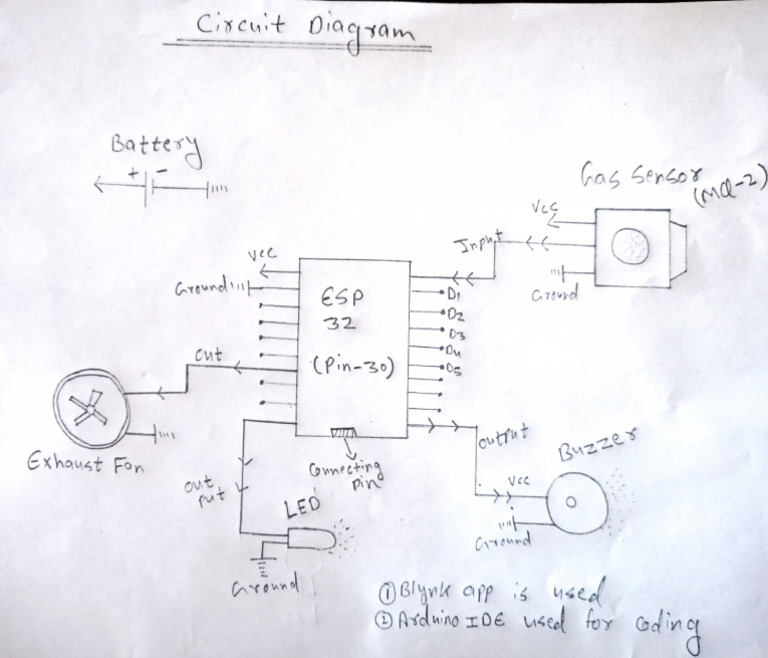 Circuit Diagram
Battery
+ -
Gas Sensor
(MQ-2)
Vcc
Input
Ground
Vcc
Ground
ESP
32
(Pin-30)
D1
D2
D3
D4
D5
out
Exhaust Fan
out
put
Connecting
Pin
LED
Ground
output
Buzzer
Vcc
Ground
① Blynk app is used
② Arduino IDE used for coding